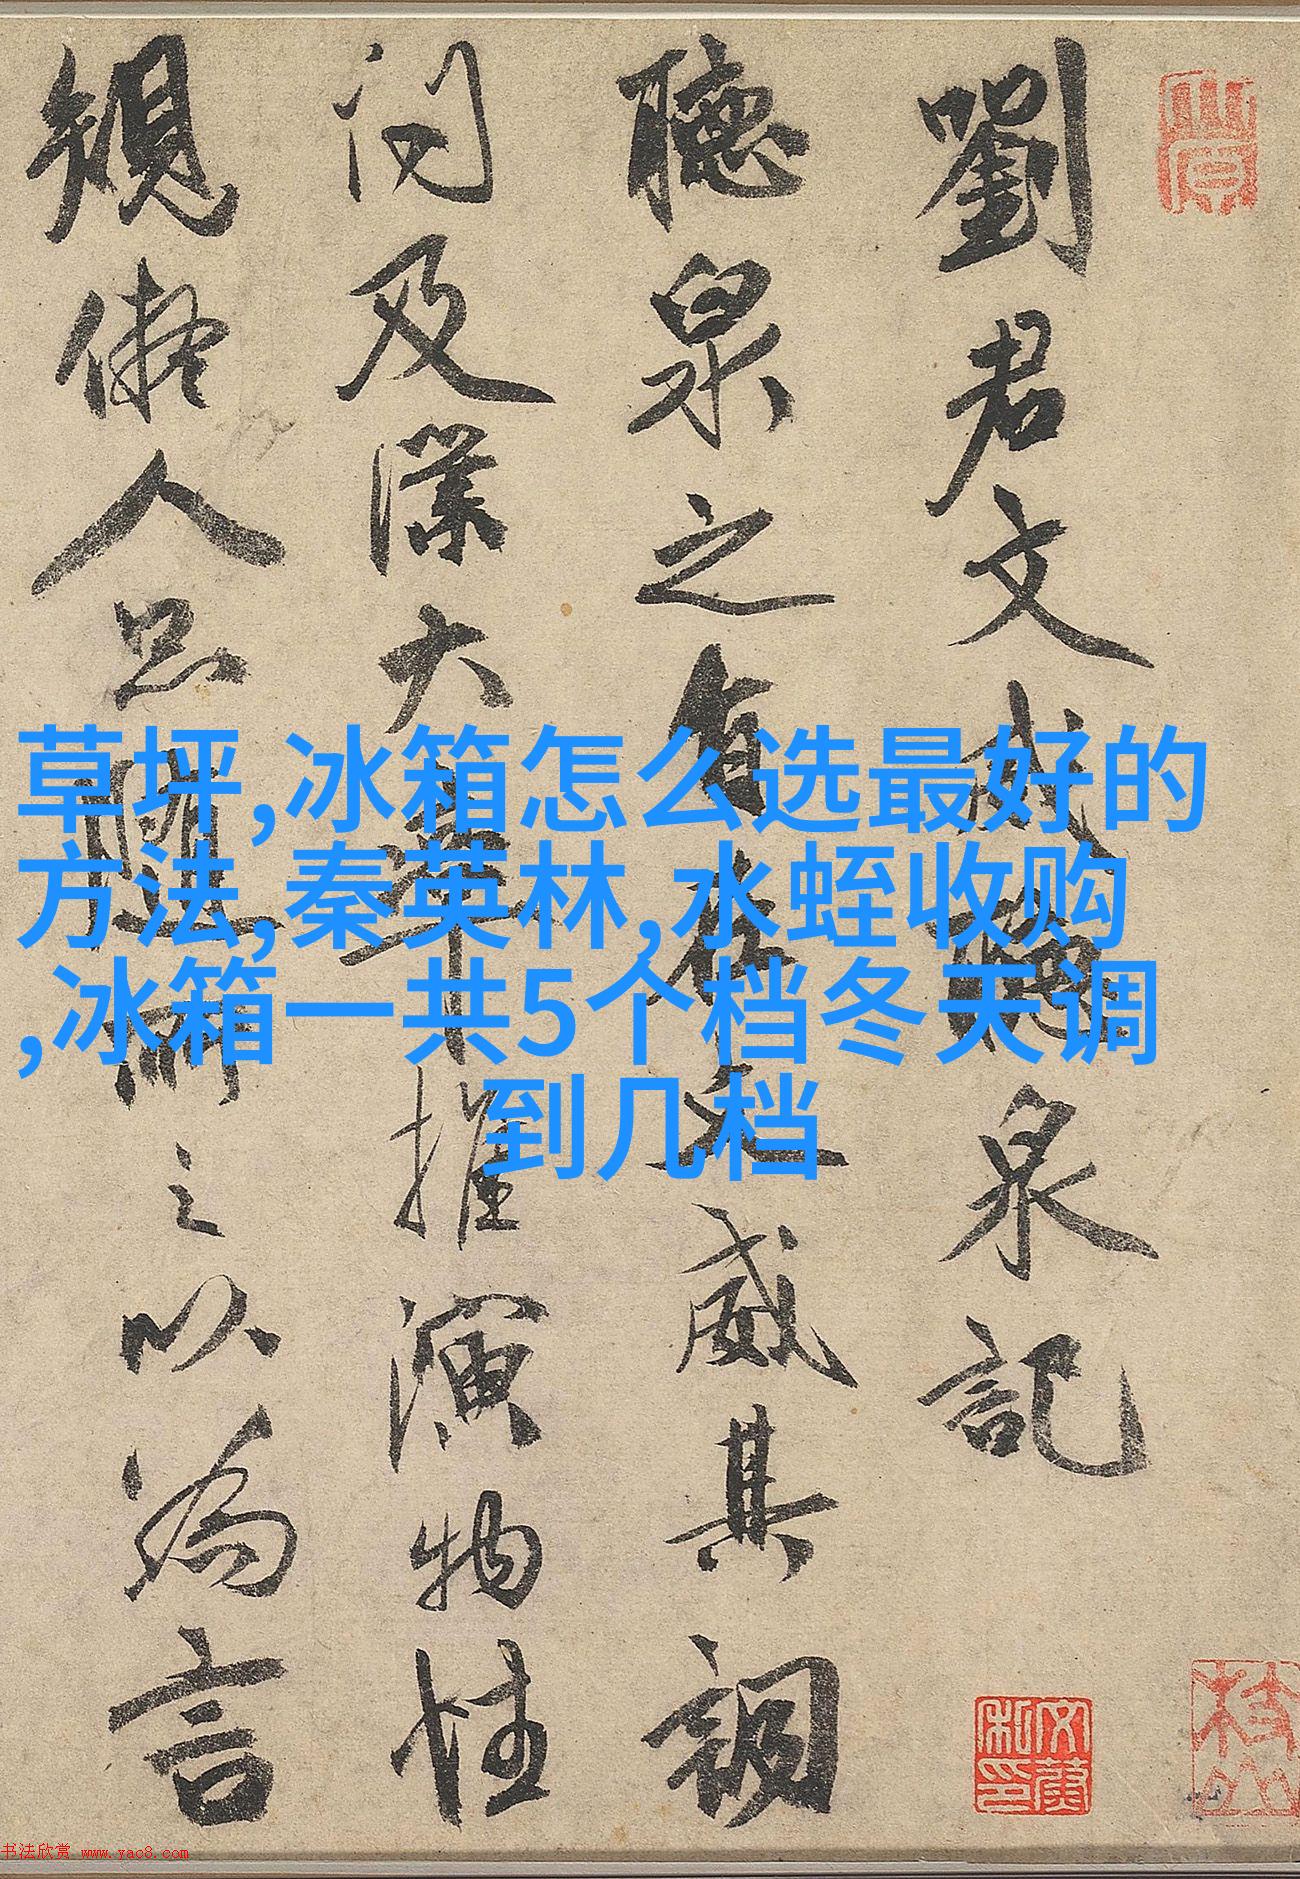 劉君文成聽泉記
聽泉之有在文威其調
问及深大率推演物性
規儗人品随所之以為言
草坪,冰箱怎么选最好的
方法,秦英林,水蛭收购
,冰箱一共5个档冬天调
到几档
书法欣赏 www.yac8.com